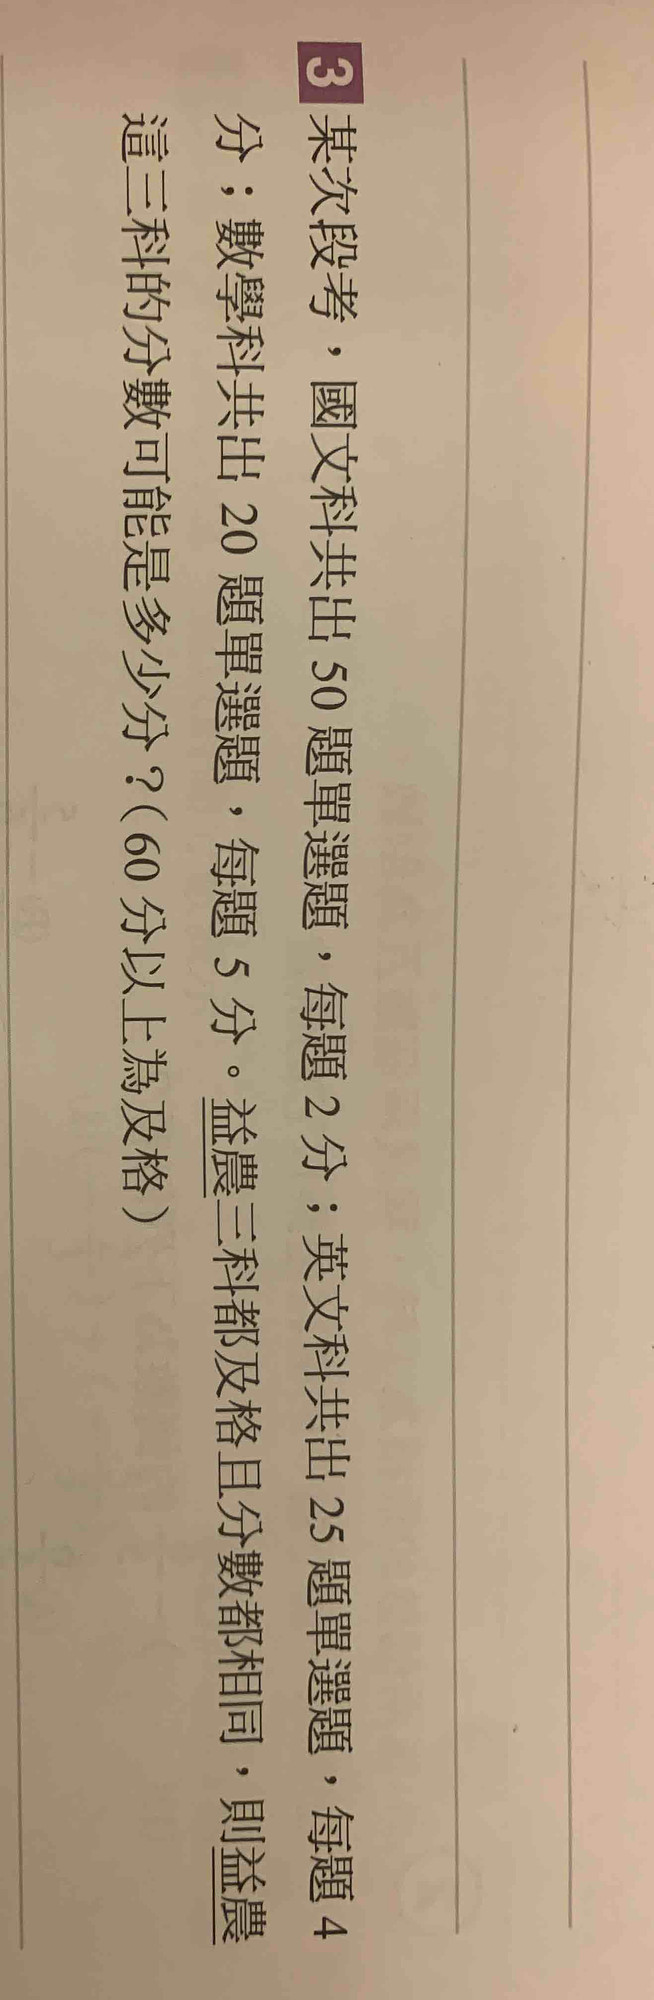 3 某次段考，國文科共出 50 題單選題，每題 2 分；英文科共出 25 題單選題，每題 4
分；數學科共出 20 題單選題，每題 5 分。益農三科都及格且分數都相同，則益農
這三科的分數可能是多少分？(60 分以上為及格)